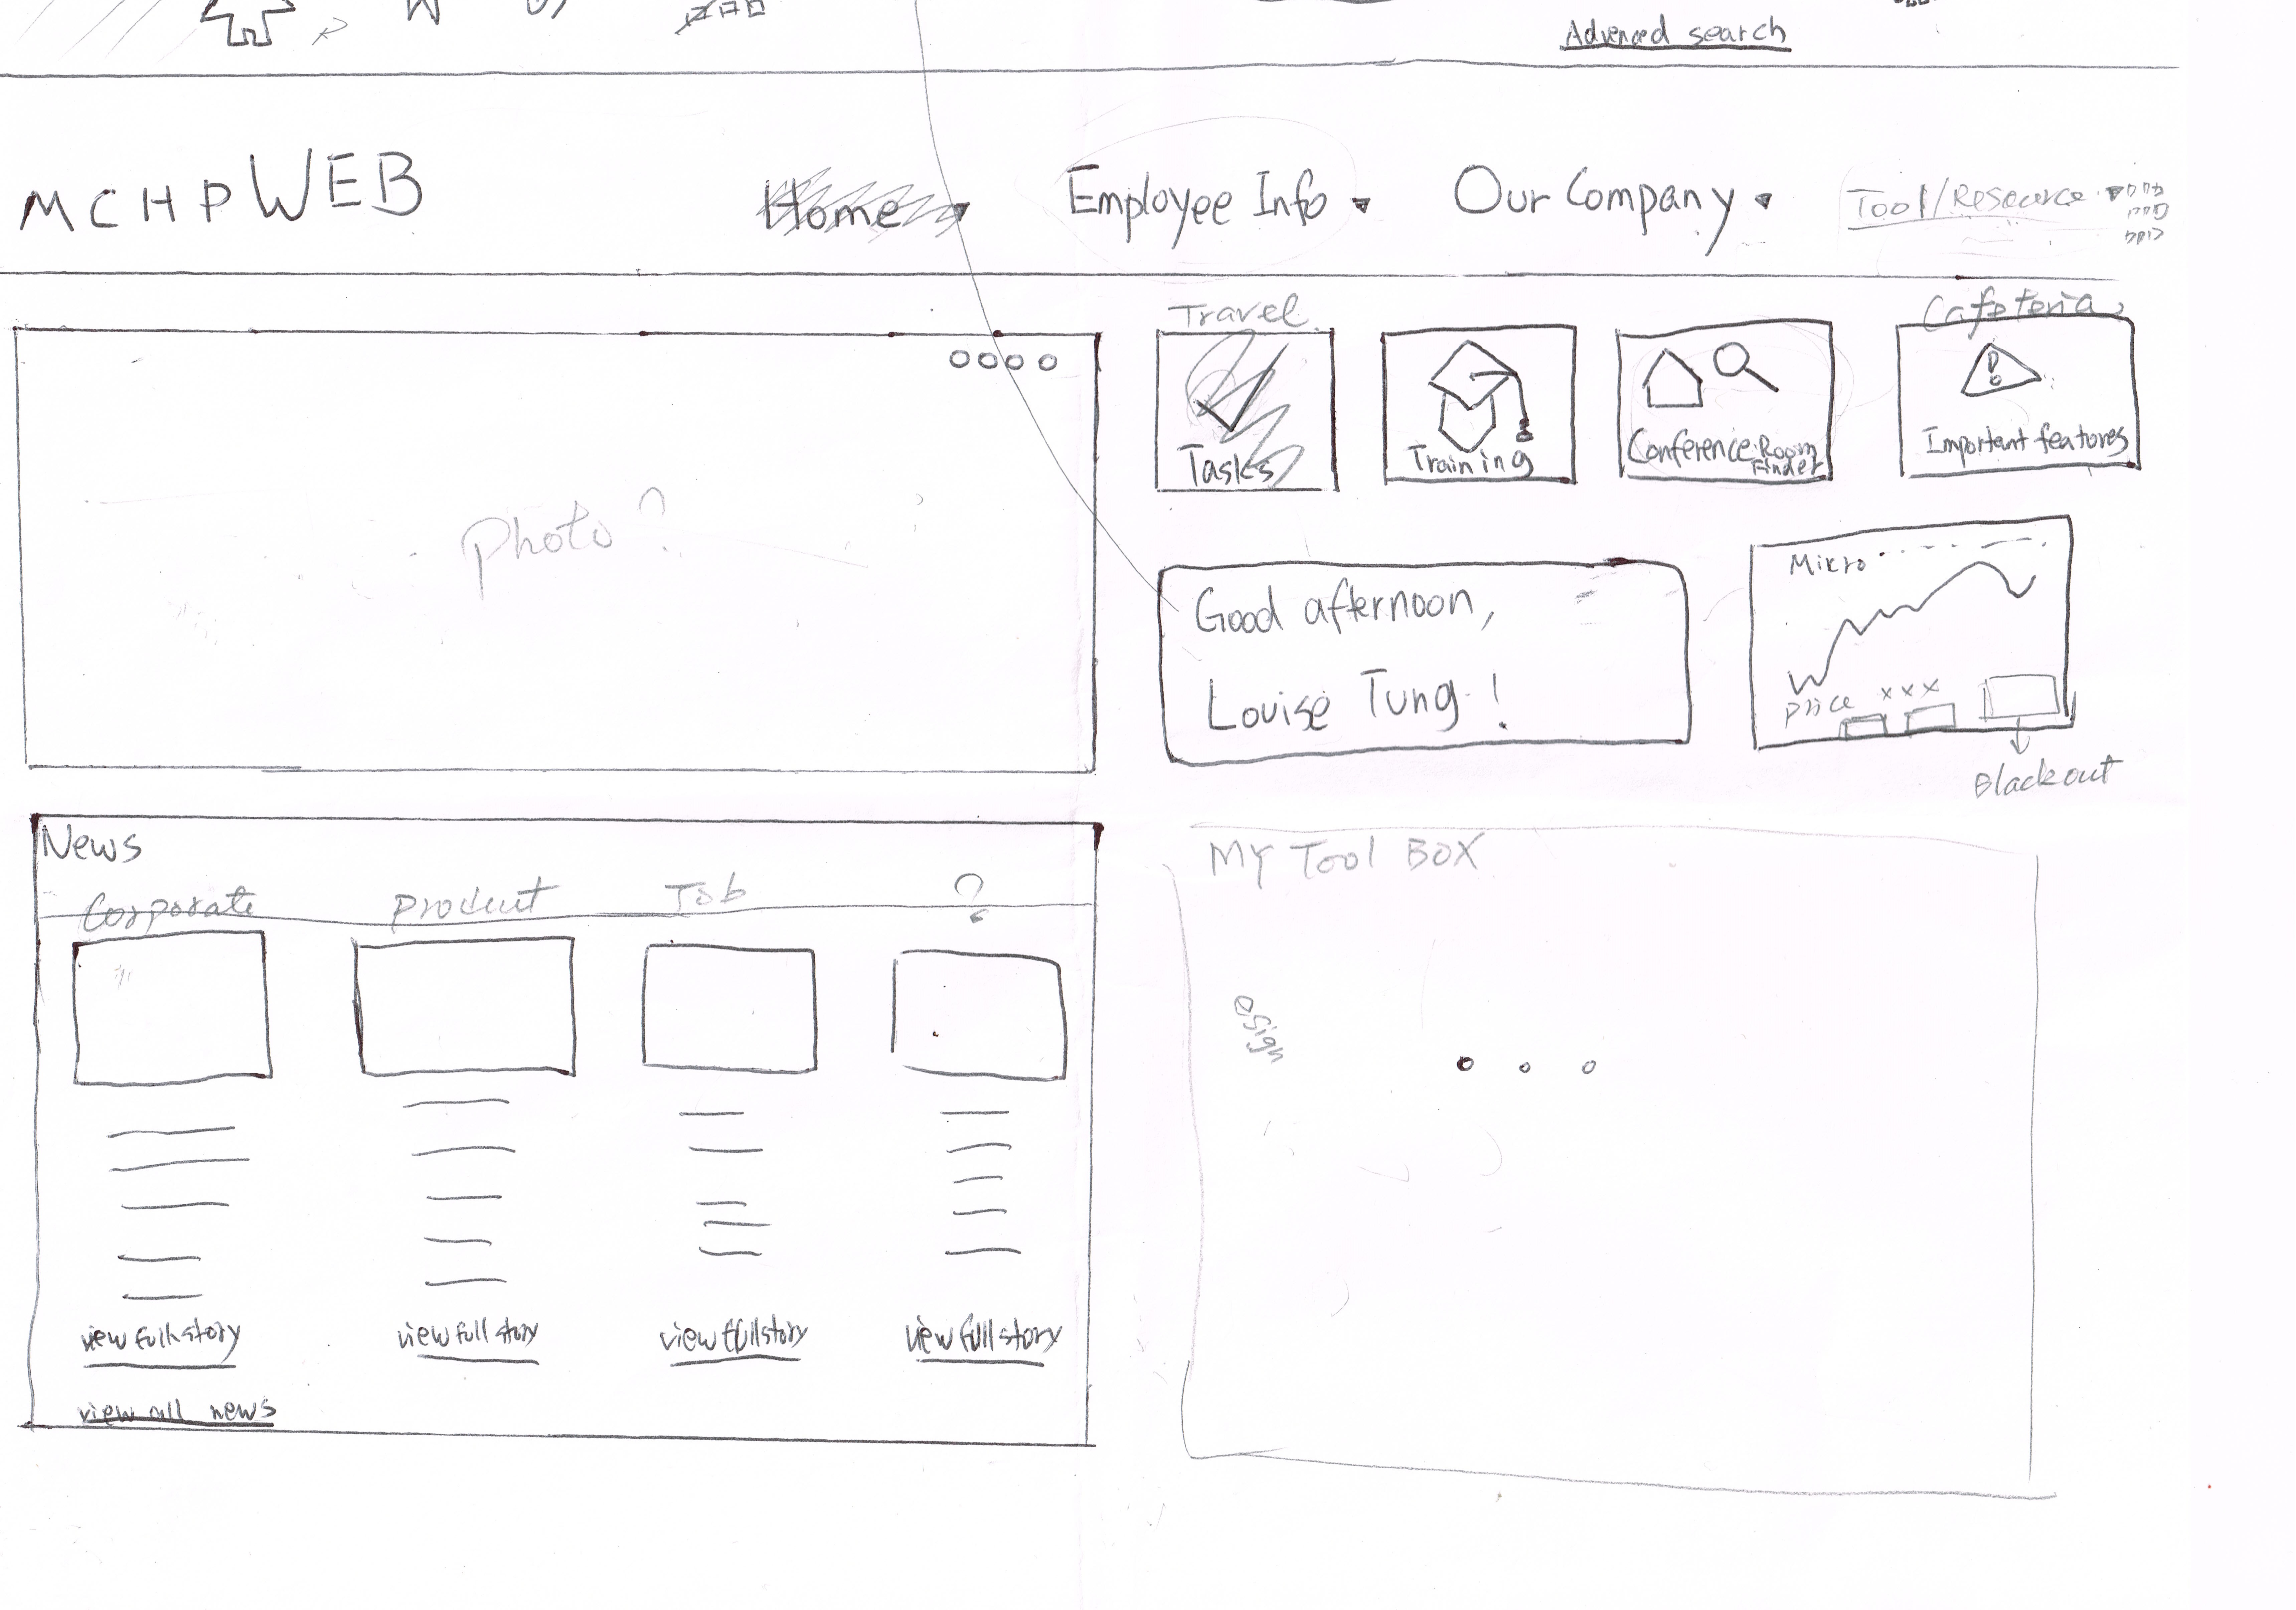 Advenced search
MCHPWEB
Home
Employee Info
Our Company
Tool/Resource
Travel
Cafeteria
Tasks
Training
Conference Room
Finder
Important features
Photo?
Good afternoon,
Louise Tung!
Mikro
price xxx
Blackout
News
Corporate Product Job ?
view full story view full story view full story view full story
view all news
My Tool Box
esign